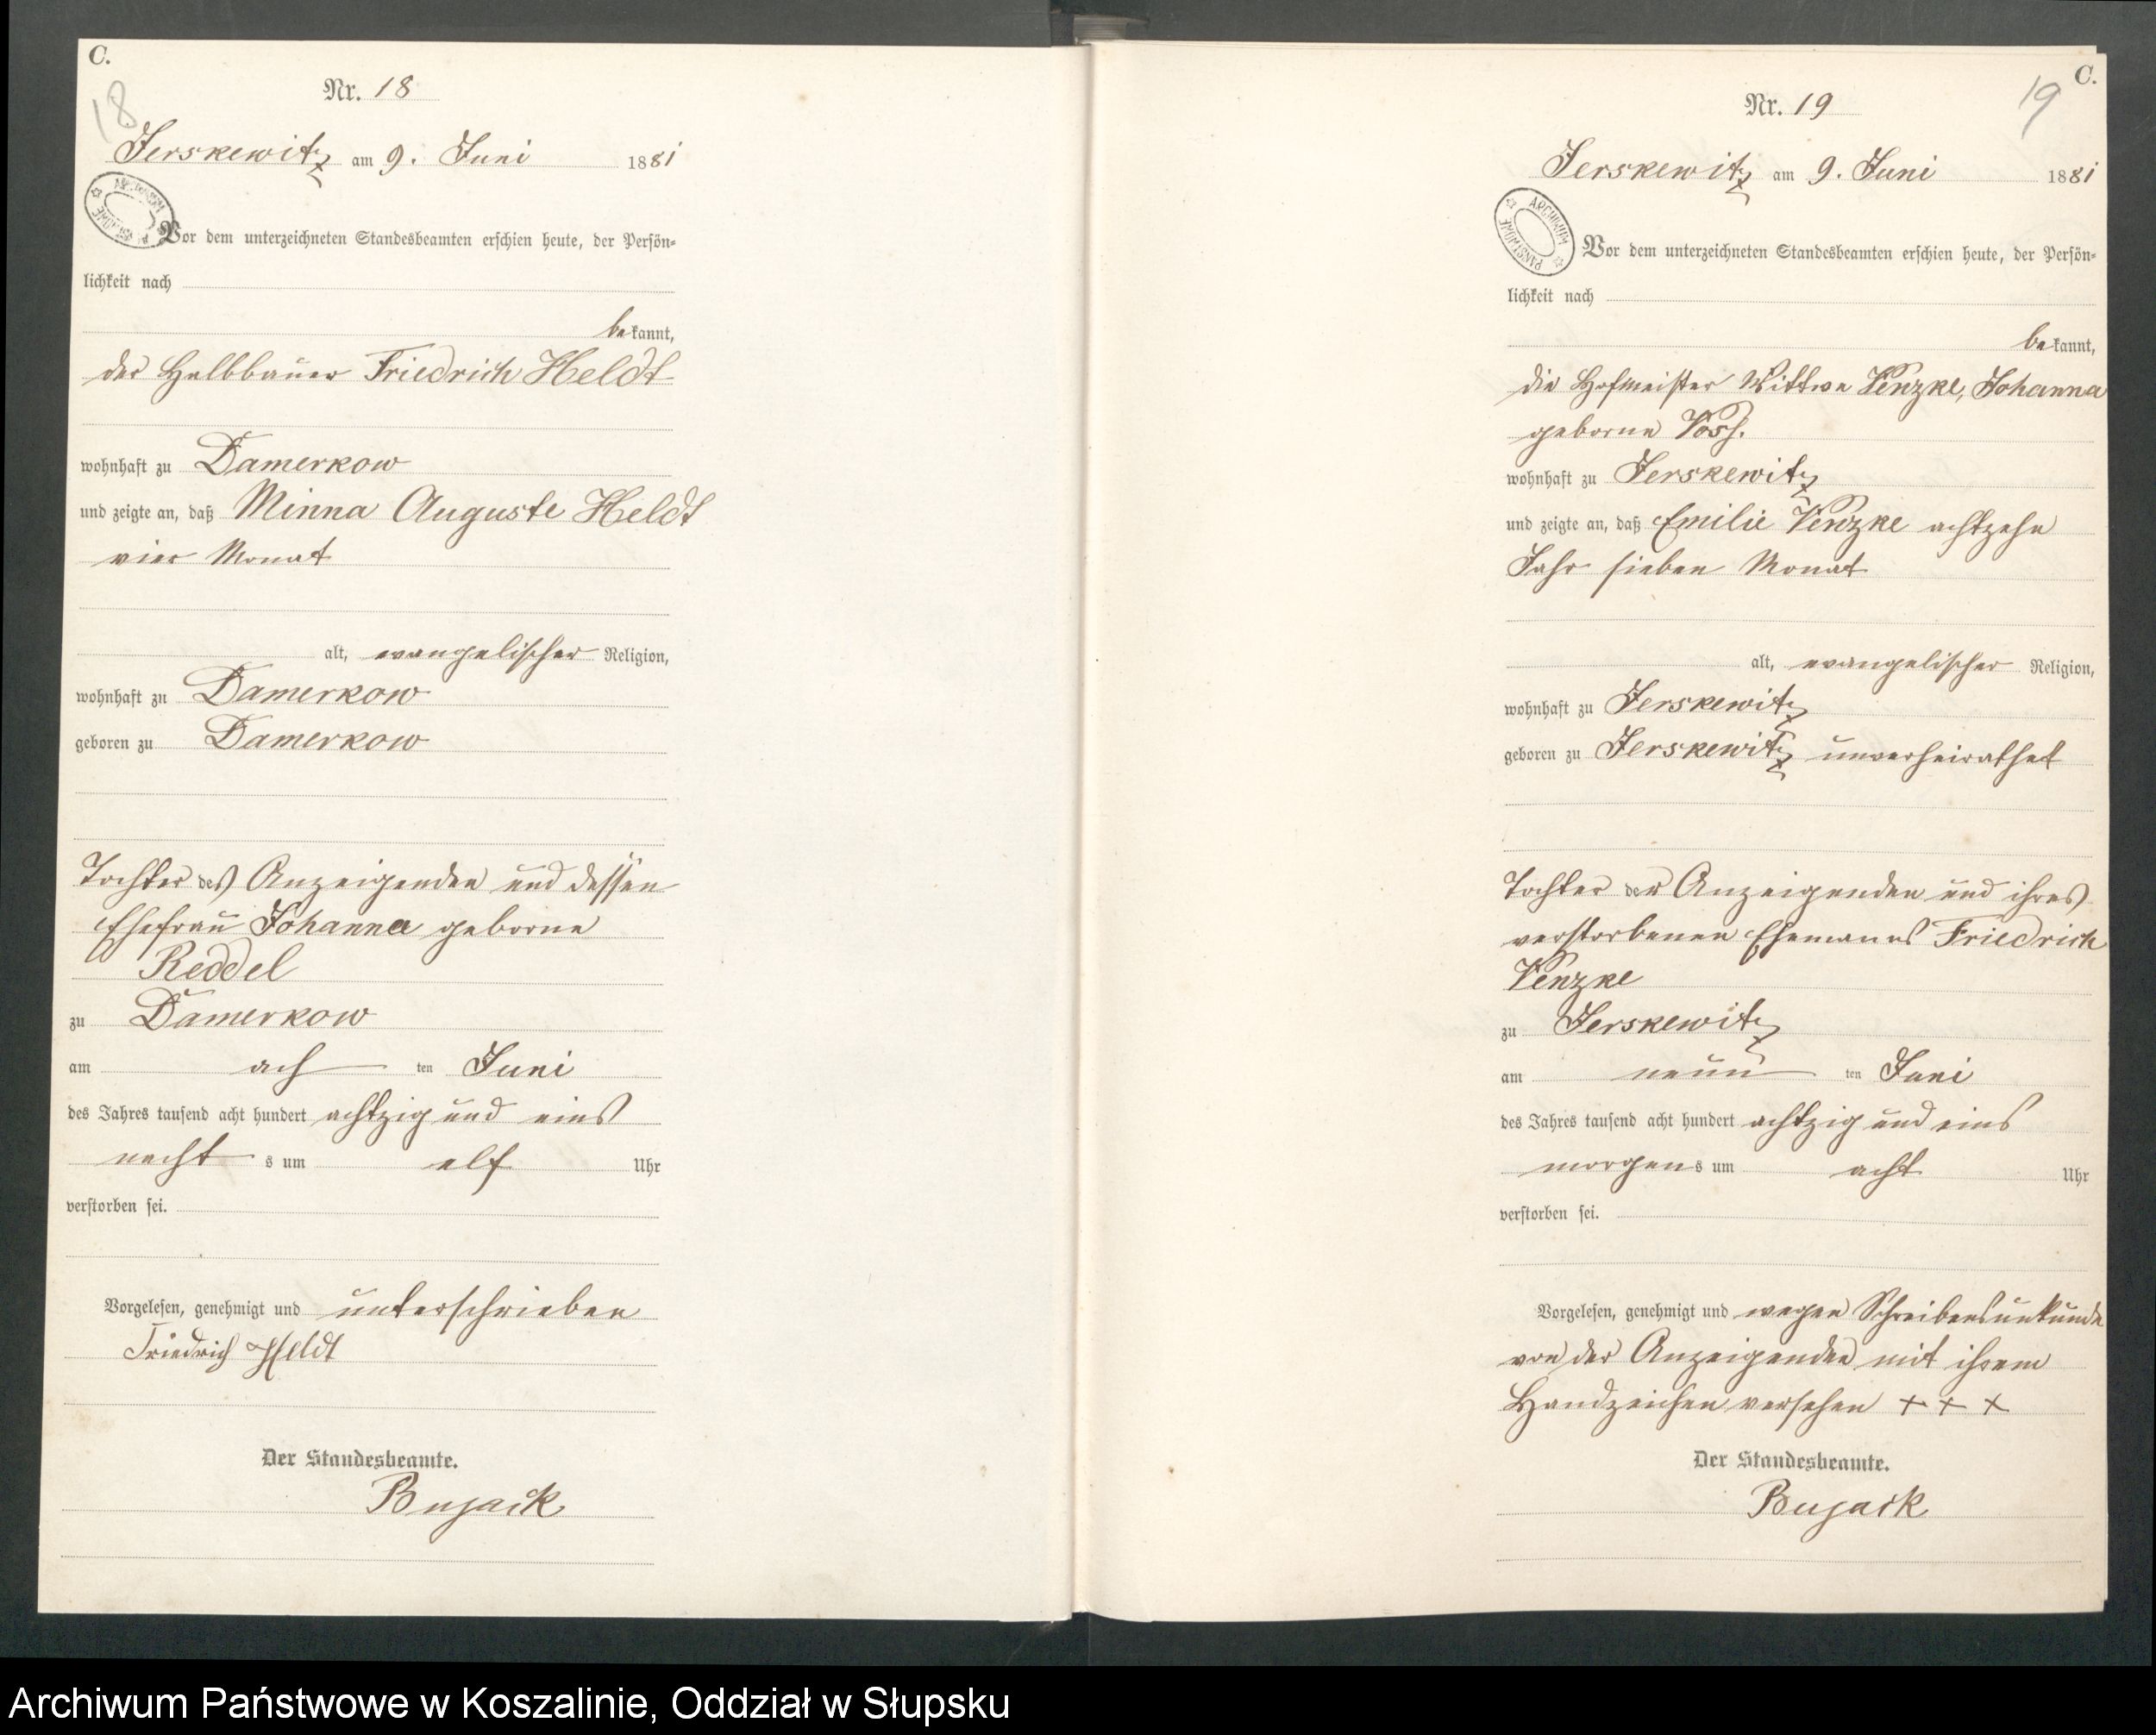 C.
18
Nr. 18
Jerskewitz am 9. Juni 1881
Vor dem unterzeichneten Standesbeamten erschien heute, der Persön-
lichkeit nach
bekannt,
der Halbbauer Friedrich Heldt
wohnhaft zu Damerkow
und zeigte an, daß Minna Auguste Heldt
vier Monat
alt, evangelischer Religion,
wohnhaft zu Damerkow
geboren zu Damerkow
Tochter des Anzeigenden und dessen
Ehefrau Johanna geborne
Reddel
zu Damerkow
am ach ten Juni
des Jahres tausend acht hundert achtzig und eins
nacht s um elf Uhr
verstorben sei.
Vorgelesen, genehmigt und unterschrieben
Friedrich Heldt
Der Standesbeamte.
Bujack
C.
19
Nr. 19
Jerskewitz am 9. Juni 1881
ARCHIWUM PAŃSTWOWE
Vor dem unterzeichneten Standesbeamten erschien heute, der Persön-
lichkeit nach
bekannt,
die Hofmeister Wittwe Venzke, Johanna
geborne Voss.
wohnhaft zu Jerskewitz
und zeigte an, daß Emilie Venzke achtzehn
Jahr sieben Monat
alt, evangelischer Religion,
wohnhaft zu Jerskewitz
geboren zu Jerskewitz unverheirathet
Tochter der Anzeigenden und ihres
verstorbenen Ehemanns Friedrich
Venzke
zu Jerskewitz
am neun ten Juni
des Jahres tausend acht hundert achtzig und eins
morgens um acht Uhr
verstorben sei.
Vorgelesen, genehmigt und wegen Schreibensunkunde
von der Anzeigenden mit ihrem
Handzeichen versehen + + +
Der Standesbeamte.
Bujack
Archiwum Państwowe w Koszalinie, Oddział w Słupsku